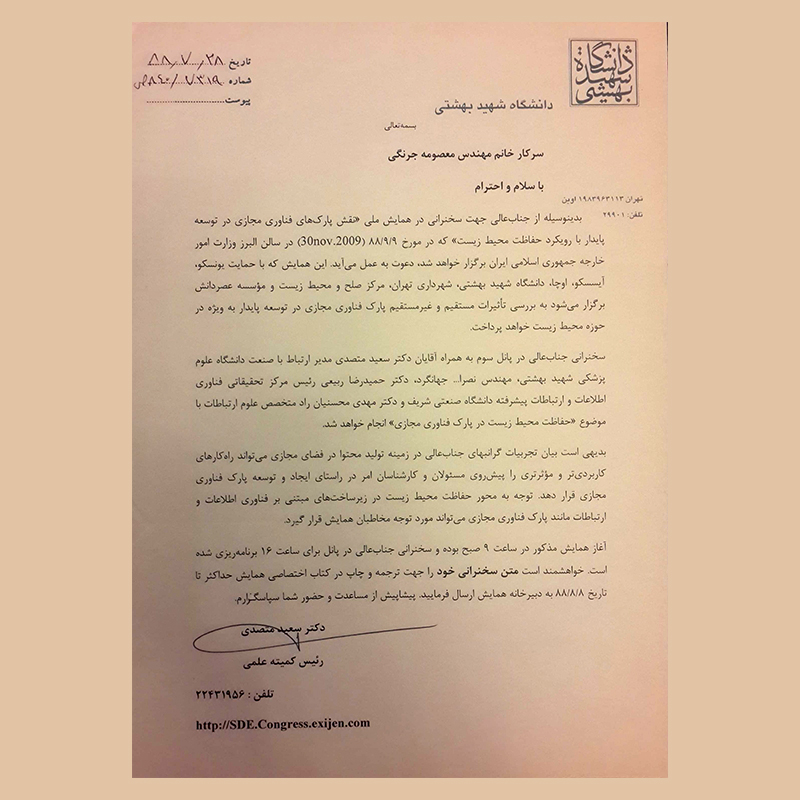 دانشگاه شهید بهشتی
تاریخ ۸۸٫۷٫۲۸
شماره
پیوست
دانشگاه شهید بهشتی
بسمه‌تعالی
سرکار خانم مهندس معصومه جرنگی
با سلام و احترام
تهران ۱۹۸۳۹۶۳۱۱۳ اوین
تلفن: ۲۹۹۰۱
بدینوسیله از جناب‌عالی جهت سخنرانی در همایش ملی «نقش پارک‌های فناوری مجازی در توسعه
پایدار با رویکرد حفاظت محیط زیست» که در مورخ ۸۸/۹/۹ (30nov.2009) در سالن البرز وزارت امور
خارجه جمهوری اسلامی ایران برگزار خواهد شد، دعوت به عمل می‌آید. این همایش که با حمایت یونسکو،
آیسسکو، اوچا، دانشگاه شهید بهشتی، شهرداری تهران، مرکز صلح و محیط زیست و مؤسسه عصردانش
برگزار می‌شود به بررسی تأثیرات مستقیم و غیرمستقیم پارک فناوری مجازی در توسعه پایدار به ویژه در
حوزه محیط زیست خواهد پرداخت.
سخنرانی جناب‌عالی در پانل سوم به همراه آقایان دکتر سعید متصدی مدیر ارتباط با صنعت دانشگاه علوم
پزشکی شهید بهشتی، مهندس نصرا... جهانگرد، دکتر حمیدرضا ربیعی رئیس مرکز تحقیقاتی فناوری
اطلاعات و ارتباطات پیشرفته دانشگاه صنعتی شریف و دکتر مهدی محسنیان راد متخصص علوم ارتباطات با
موضوع «حفاظت محیط زیست در پارک فناوری مجازی» انجام خواهد شد.
بدیهی است بیان تجربیات گرانبهای جناب‌عالی در زمینه تولید محتوا در فضای مجازی می‌تواند راه‌کارهای
کاربردی‌تر و مؤثرتری را پیش‌روی مسئولان و کارشناسان امر در راستای ایجاد و توسعه پارک فناوری
مجازی قرار دهد. توجه به محور حفاظت محیط زیست در زیرساخت‌های مبتنی بر فناوری اطلاعات و
ارتباطات مانند پارک فناوری مجازی می‌تواند مورد توجه مخاطبان همایش قرار گیرد.
آغاز همایش مذکور در ساعت ۹ صبح بوده و سخنرانی جناب‌عالی در پانل برای ساعت ۱۶ برنامه‌ریزی شده
است. خواهشمند است متن سخنرانی خود را جهت ترجمه و چاپ در کتاب اختصاصی همایش حداکثر تا
تاریخ ۸۸/۸/۸ به دبیرخانه همایش ارسال فرمایید. پیشاپیش از مساعدت و حضور شما سپاسگزارم.
دکتر سعید متصدی
رئیس کمیته علمی
تلفن : ۲۲۴۳۱۹۵۶
http://SDE.Congress.exijen.com